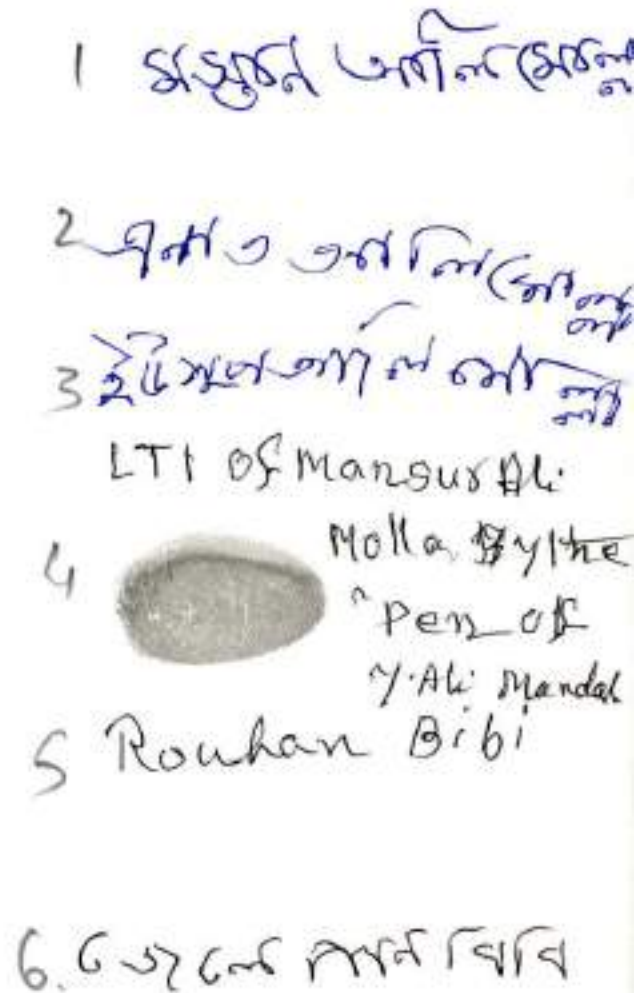 1 মজ্ঞুবান আলি মোল্লা
2 এনাত আলি মোল্লা
3 ইউসুফ আলি মোল্লা
LTI Of Mansur Ali
4 Molla By the
Pen of
Y. Ali Mandal
5 Rouhan Bibi
6. বিবি